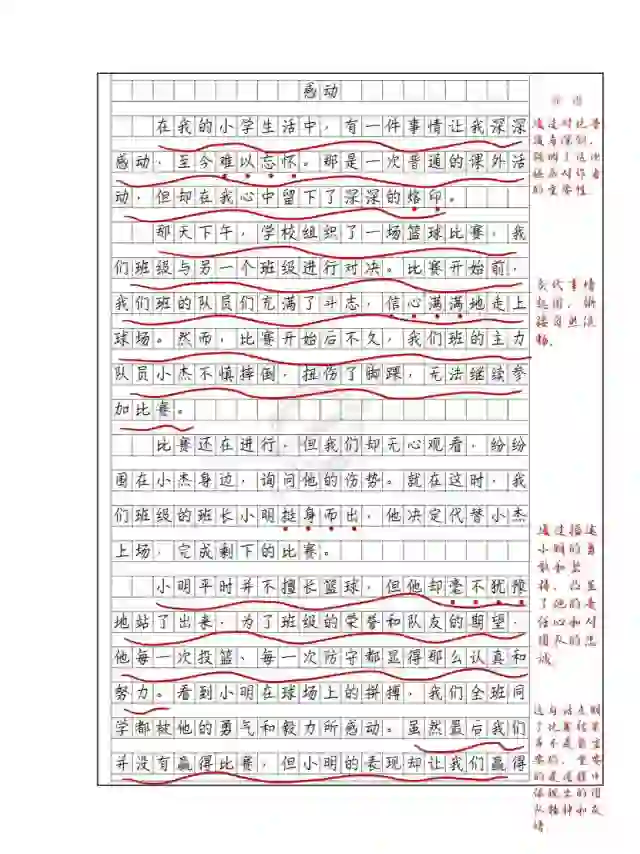 感动
在我的小学生活中，有一件事情让我深深
感动，至今难以忘怀。那是一次普通的课外活
动，但却在我心中留下了深深的烙印。
那天下午，学校组织了一场篮球比赛，我
们班级与另一个班级进行对决。比赛开始前，
我们班的队员们充满了斗志，信心满满地走上
球场。然而，比赛开始后不久，我们班的主力
队员小杰不慎摔倒，扭伤了脚踝，无法继续参
加比赛。
比赛还在进行，但我们却无心观看，纷纷
围在小杰身边，询问他的伤势。就在这时，我
们班级的班长小明挺身而出，他决定代替小杰
上场，完成剩下的比赛。
小明平时并不擅长篮球，但他却毫不犹豫
地站了出来，为了班级的荣誉和队友的期望，
他每一次投篮、每一次防守都显得那么认真和
努力。看到小明在球场上的拼搏，我们全班同
学都被他的勇气和毅力所感动。虽然最后我们
并没有赢得比赛，但小明的表现却让我们赢得
通过对比普
通与深刻，
强调了这次
对作者
的重要性。
交代事情
起因，衔
接自然流
畅。
通过描述
小明的勇
敢和坚
持，凸显
了他的责
任心和对
团队的忠
诚。
这句话点明
了比赛结果
并不是最重
要的，重要
的是过程中
体现出的团
队精神和友
情